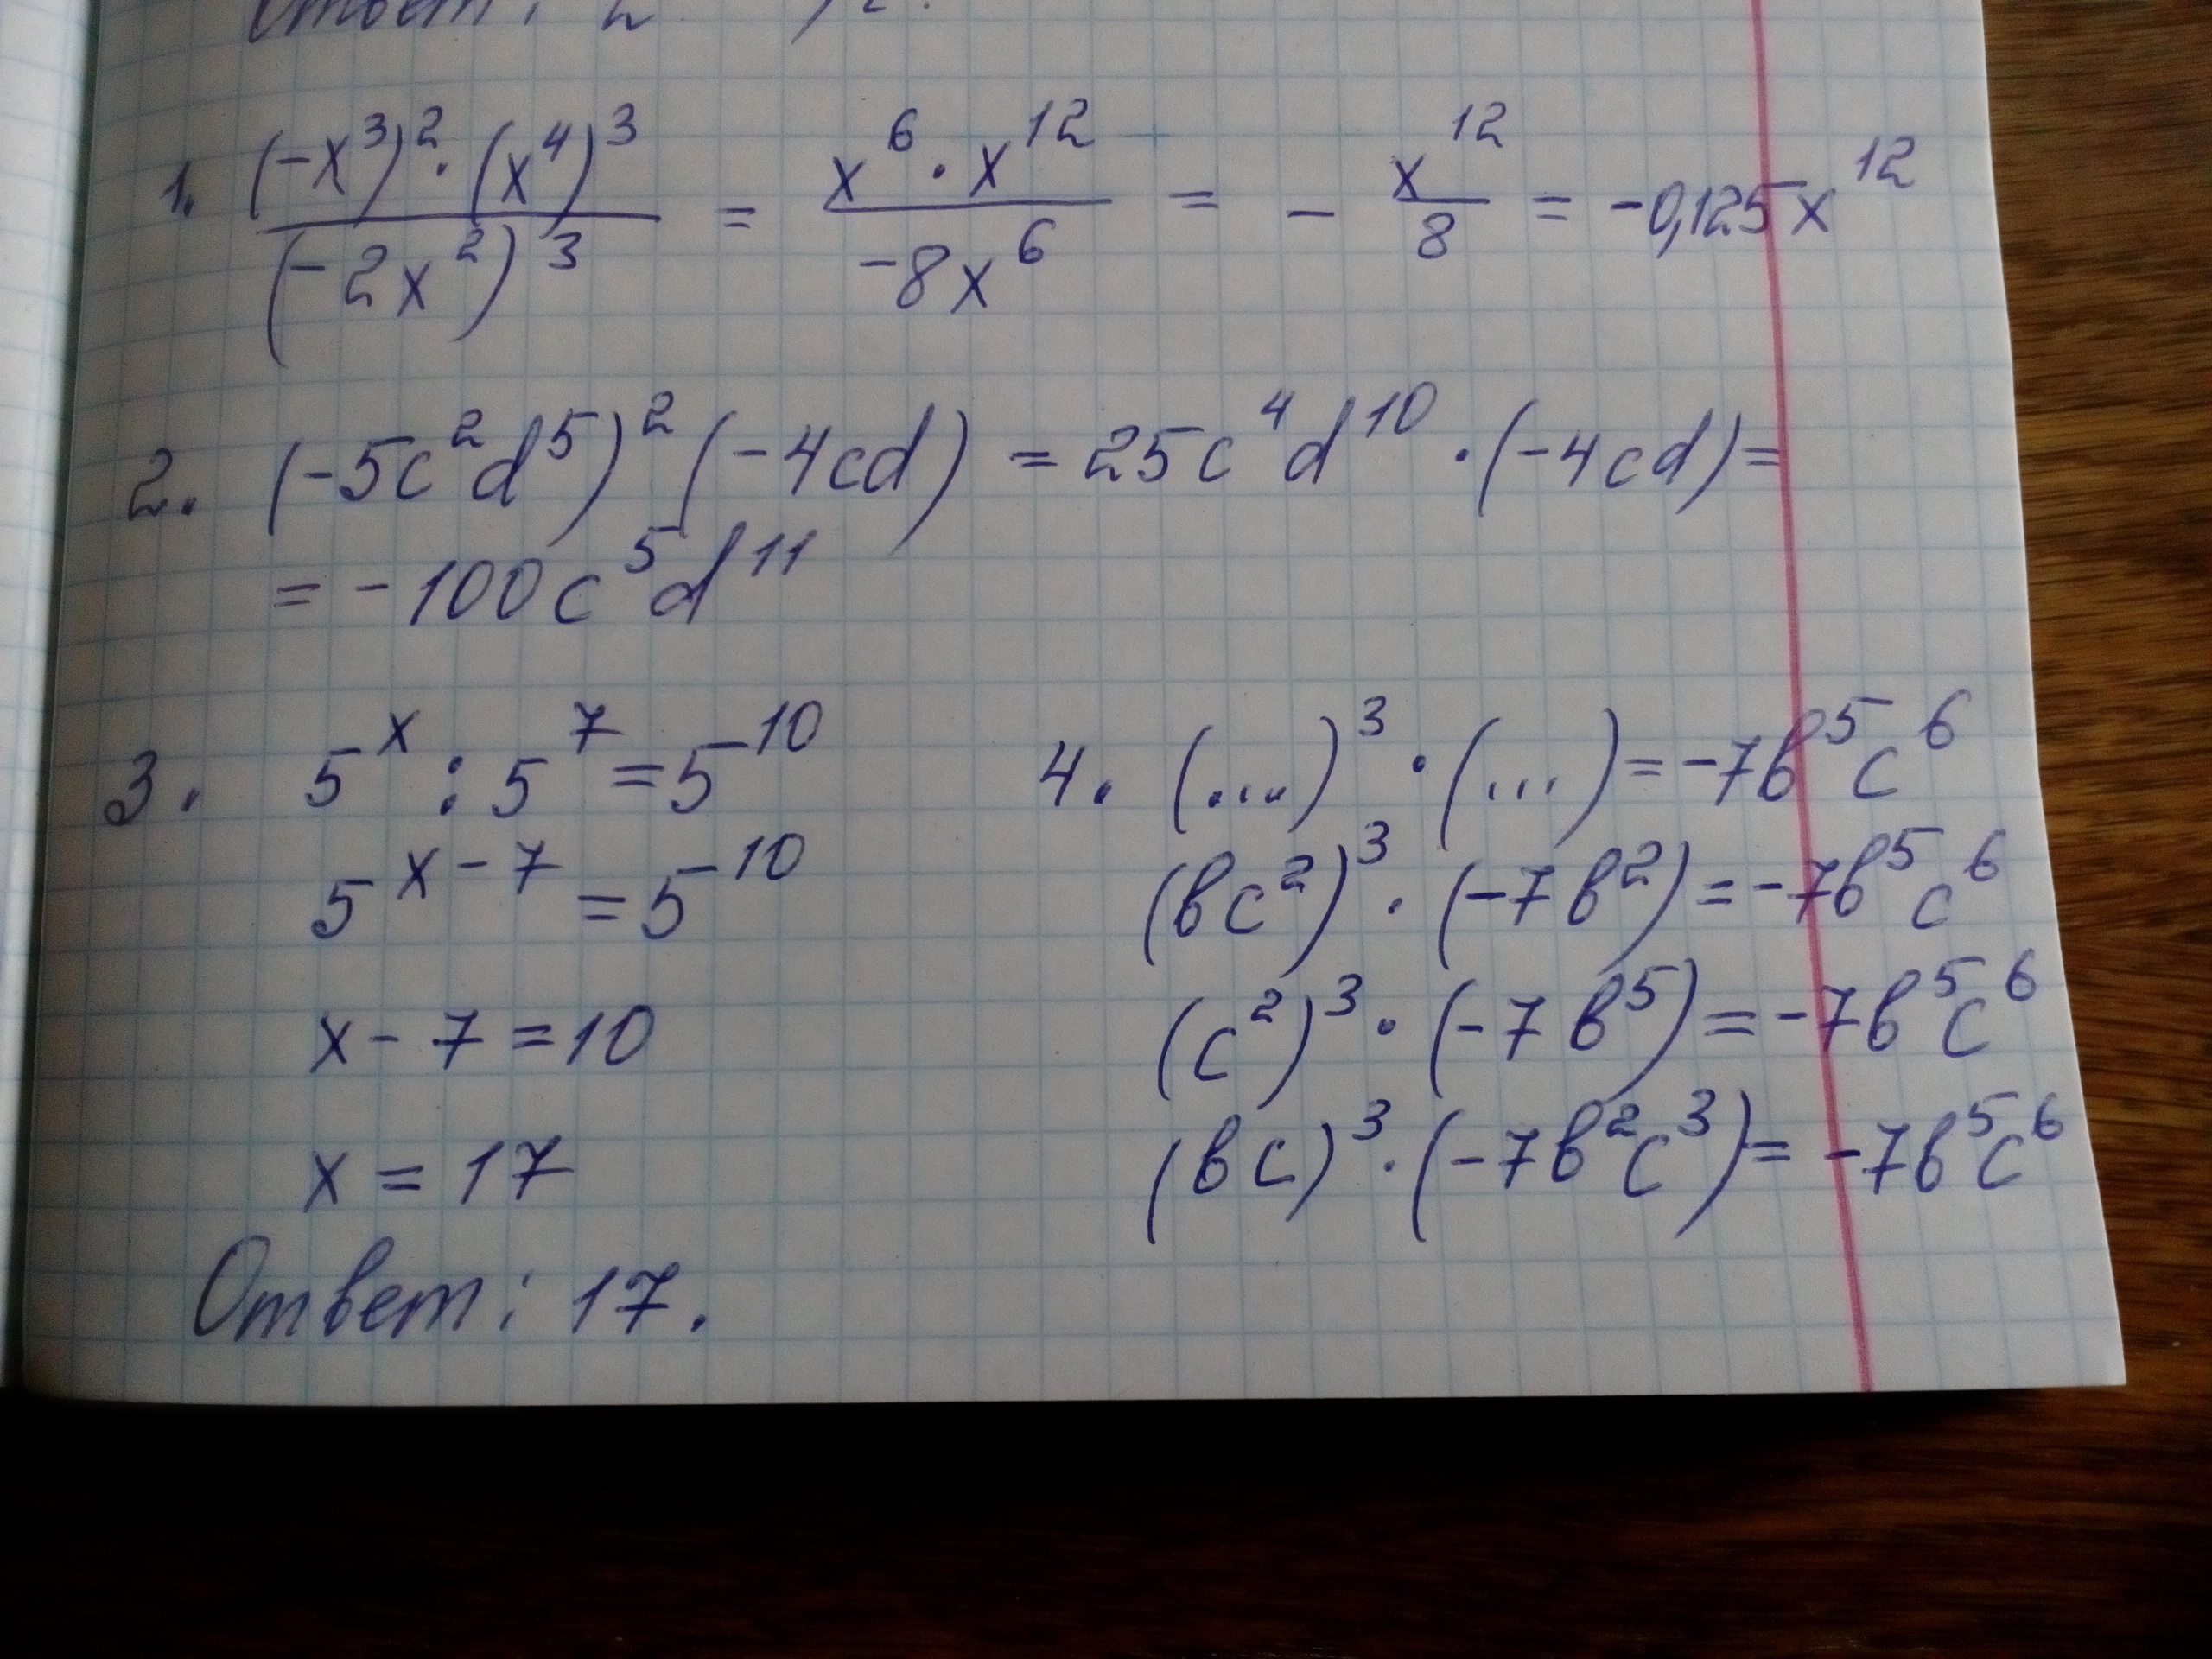 Ответ:
1. (-x³)² · (x⁴)³ / (-2x²)³ = x⁶ · x¹² / -8x⁶ = - x¹²/8 = -0,125x¹²
2. (-5c²d⁵)² (-4cd) = 25c⁴d¹⁰ · (-4cd) =
= -100c⁵d¹¹
3. 5ˣ : 5⁷ = 5¹⁰
5ˣ⁻⁷ = 5¹⁰
x - 7 = 10
x = 17
Ответ: 17.
4. (...)³ · (...) = -7в⁵c⁶
(вc²)³ · (-7в²) = -7в⁵c⁶
(c²)³ · (-7в⁵) = -7в⁵c⁶
(вc)³ · (-7в²c³) = -7в⁵c⁶